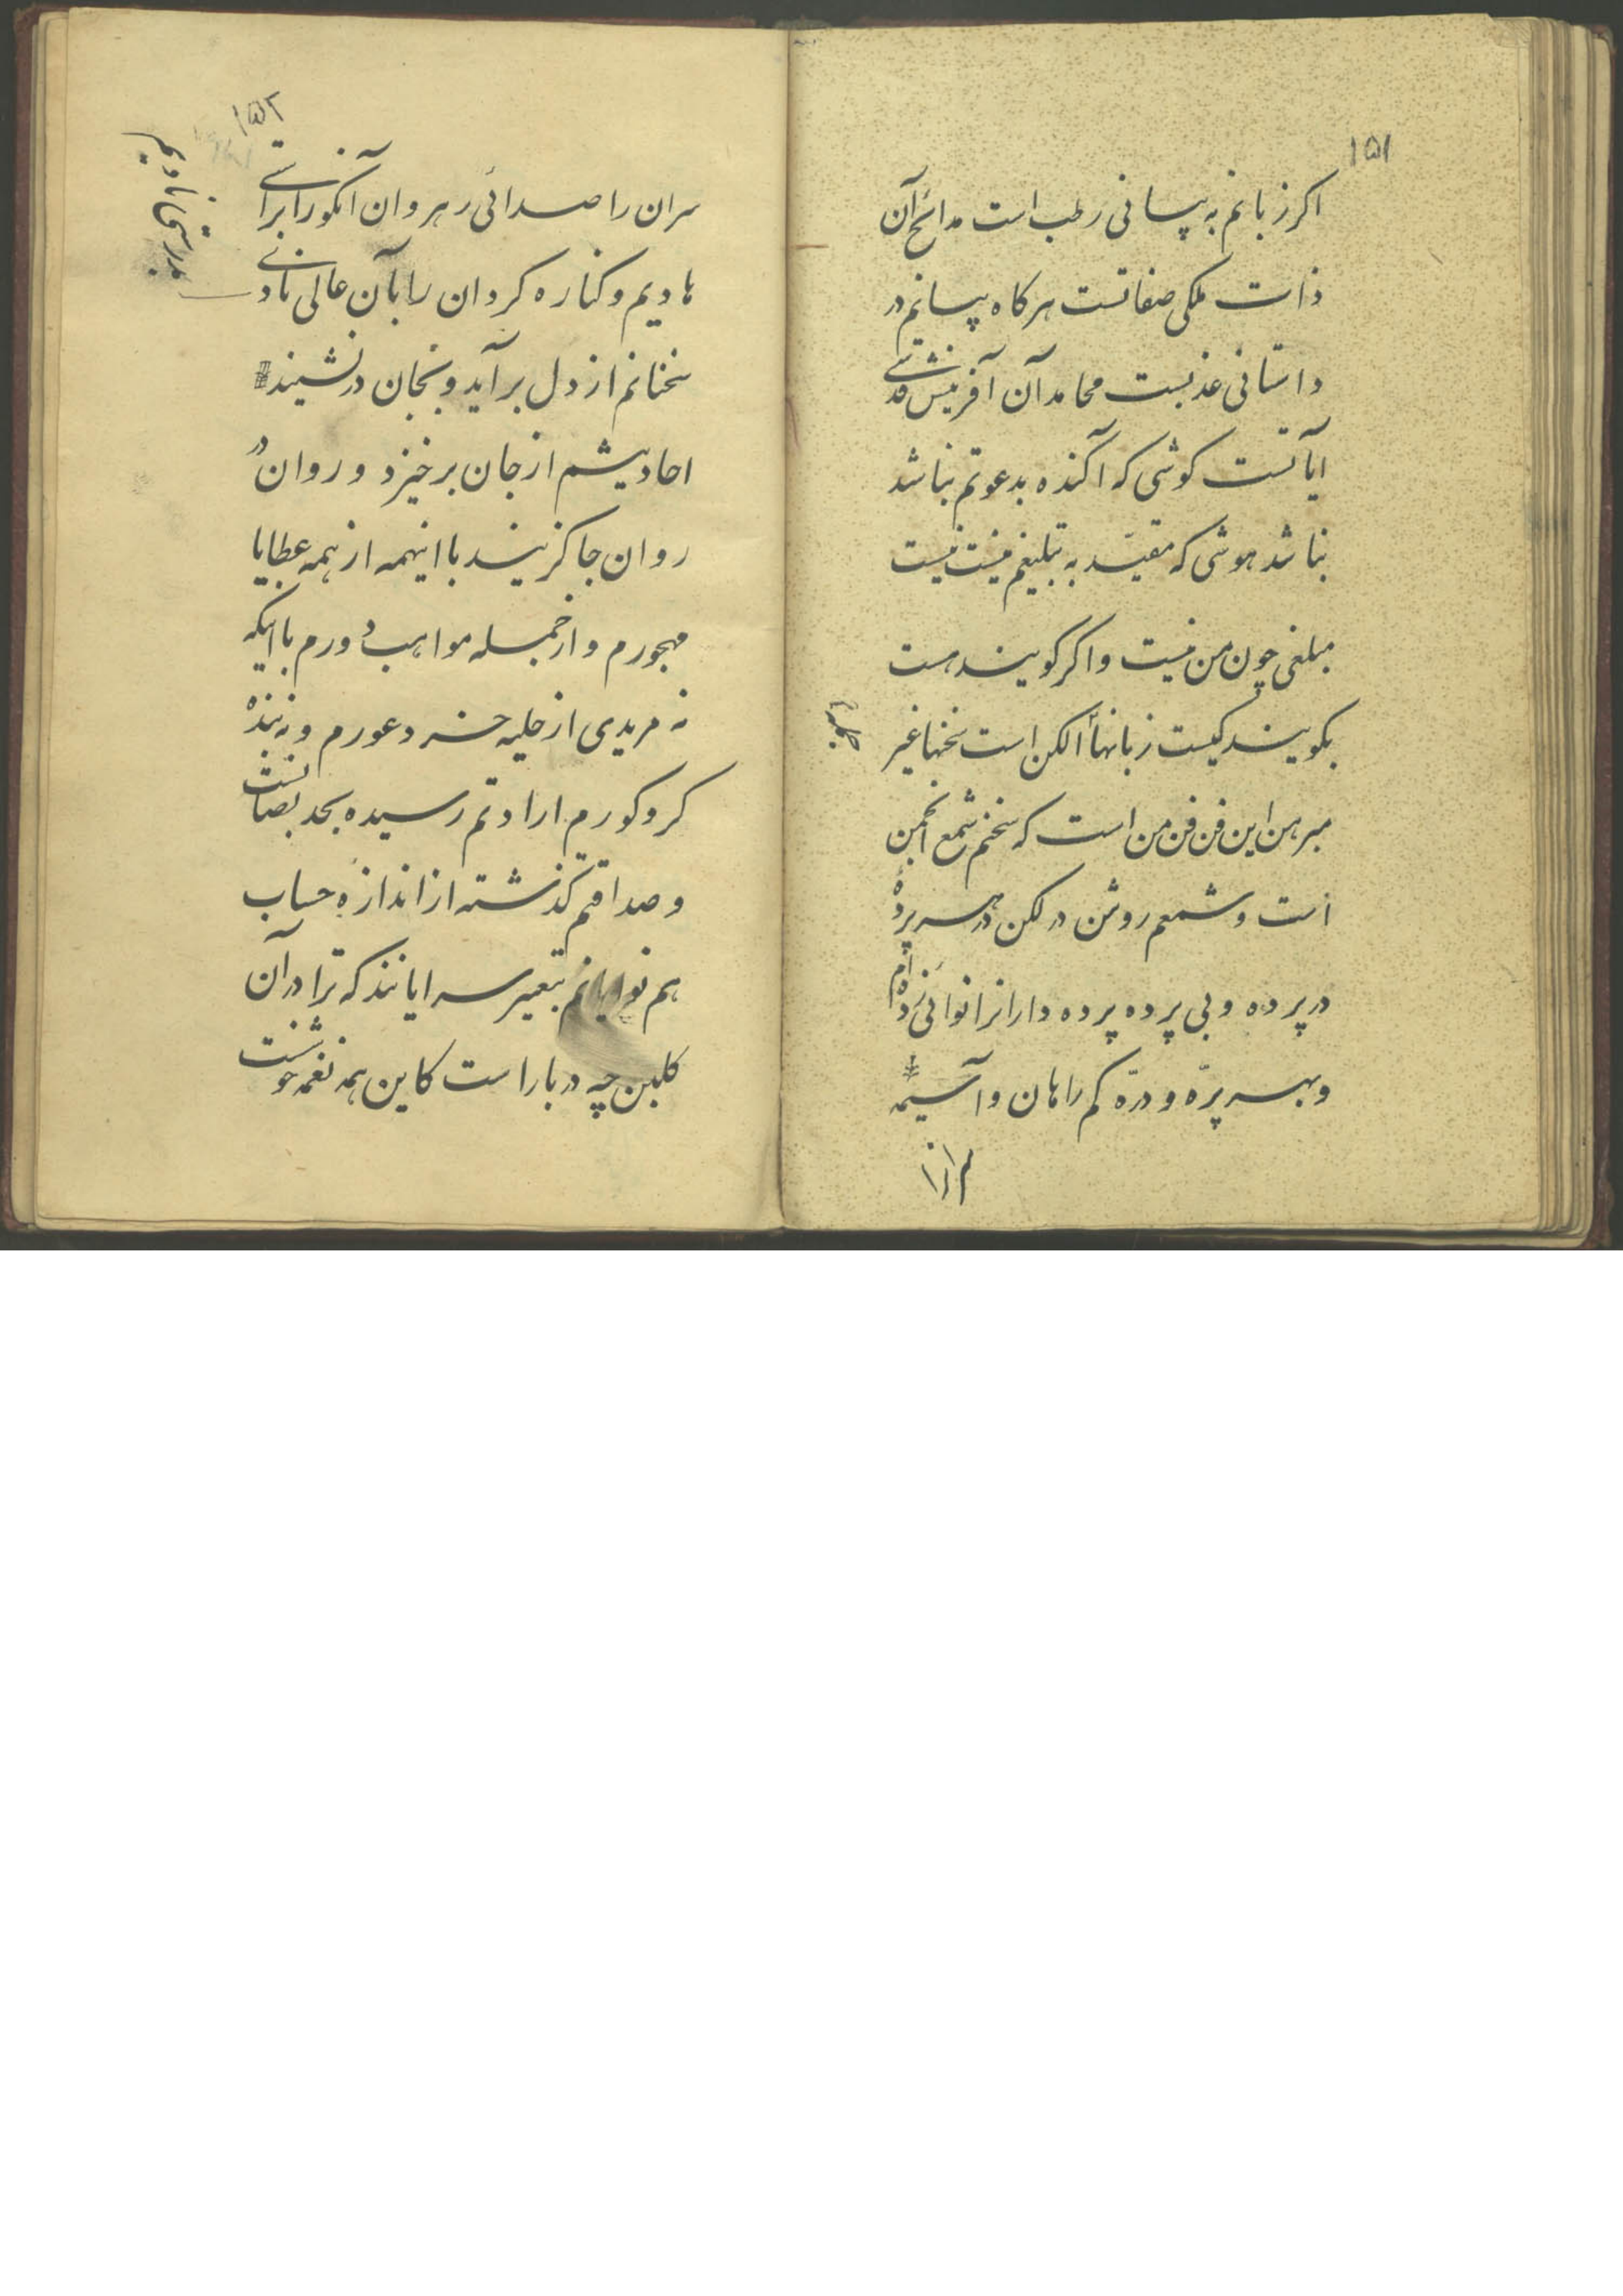 ۱۵۱
اکر زبانم به پیسانی رطب است مدائح آن
ذات ملکی صفاتست هرکاه پیسانم در
داستانی عذبست محامد آن آفرینش قدسی
آیاتست کوشی که آکنده بدعوتم نباشد
نباشد هوشی که مقیّد به تبلیغم نیست نیست
مبلغی چون من نیست و اکر کویند هست
بکویند کیست زبانها الکن است سخنها غیر
مبرهن این فن فن من است که سخنم شمع انجمن
است و شمعم روشن در لکن در هر پردهٔ
در پرده و بی پرده پرده دارانرا نوائی زده‌ام
و بهر پرّه و درّه کم راهان و آسیمه
۱۵۲
سران را صدائی رهروان آنکو را براستی
هادیم و کناره کردان را بآن عالی نادی
سخنانم از دل برآید و بجان درنشیند
احادیثم از جان برخیزد و روان در
روان جا کزیند با اینهمه از همه عطایا
مهجورم و از جمله مواهب دورم با اینکه
نه مریدی از حلیه خرد عورم و نه بندهٔ
کر و کورم ارادتم رسیده بحد نصابست
و صداقتم کذشته از اندازهٔ حساب
هم نوایانم بتعییر سرایانند که ترا در آن
کلبن چه در بار است کاین همه نغمه خوشست